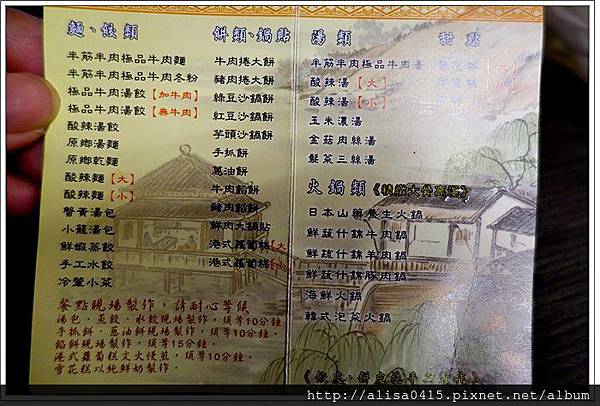 麵、餃類
半筋半肉極品牛肉麵
半筋半肉極品牛肉冬粉
極品牛肉湯餃【加牛肉】
極品牛肉湯餃【無牛肉】
酸辣湯餃
原鄉湯麵
原鄉乾麵
酸辣麵【大】
酸辣麵【小】
蟹黃湯包
小籠湯包
鮮蝦蒸餃
手工水餃
冷盤小菜
餅類、鍋貼
牛肉捲大餅
豬肉捲大餅
綠豆沙鍋餅
紅豆沙鍋餅
芋頭沙鍋餅
手抓餅
蔥油餅
牛肉餡餅
豬肉餡餅
鮮肉大鍋貼
港式蘿蔔糕(大
港式蘿蔔糕(小
湯類
半筋半肉極品牛肉湯
酸辣湯【大】
酸辣湯【小】
玉米濃湯
金菇肉絲湯
髮菜三絲湯
甜點
火鍋類《精燉大骨高湯》
日本山藥養生火鍋
鮮蔬什錦牛肉鍋
鮮蔬什錦羊肉鍋
鮮蔬什錦豚肉鍋
海鮮火鍋
韓式泡菜火鍋
餐點現場製作，請耐心等候
湯包、蒸餃、水餃現場製作，須等10分鐘。
手抓餅、蔥油餅現場製作，須等10分鐘。
餡餅現場製作，須等15分鐘。
港式蘿蔔糕文火慢煎，須等10分鐘。
雪花糕以純鮮奶製作。
http://alisa0415.pixnet.net/album